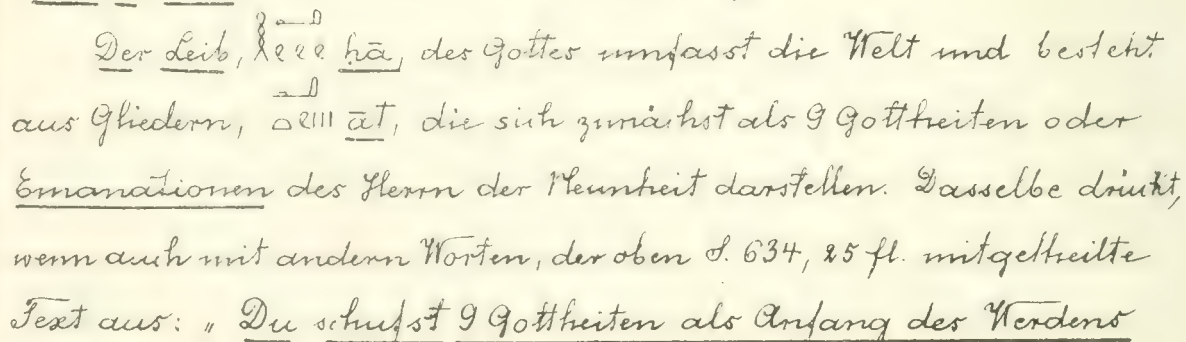 Der Leib, ḥā, des Gottes umfasst die Welt und besteht
aus Gliedern, āt, die sich zunächst als 9 Gottheiten oder
Emanationen des Herrn der Neunheit darstellen. Dasselbe drückt,
wenn auch mit andern Worten, der oben S. 634, 25 fl. mitgetheilte
Text aus: „Du schufst 9 Gottheiten als Anfang des Werdens